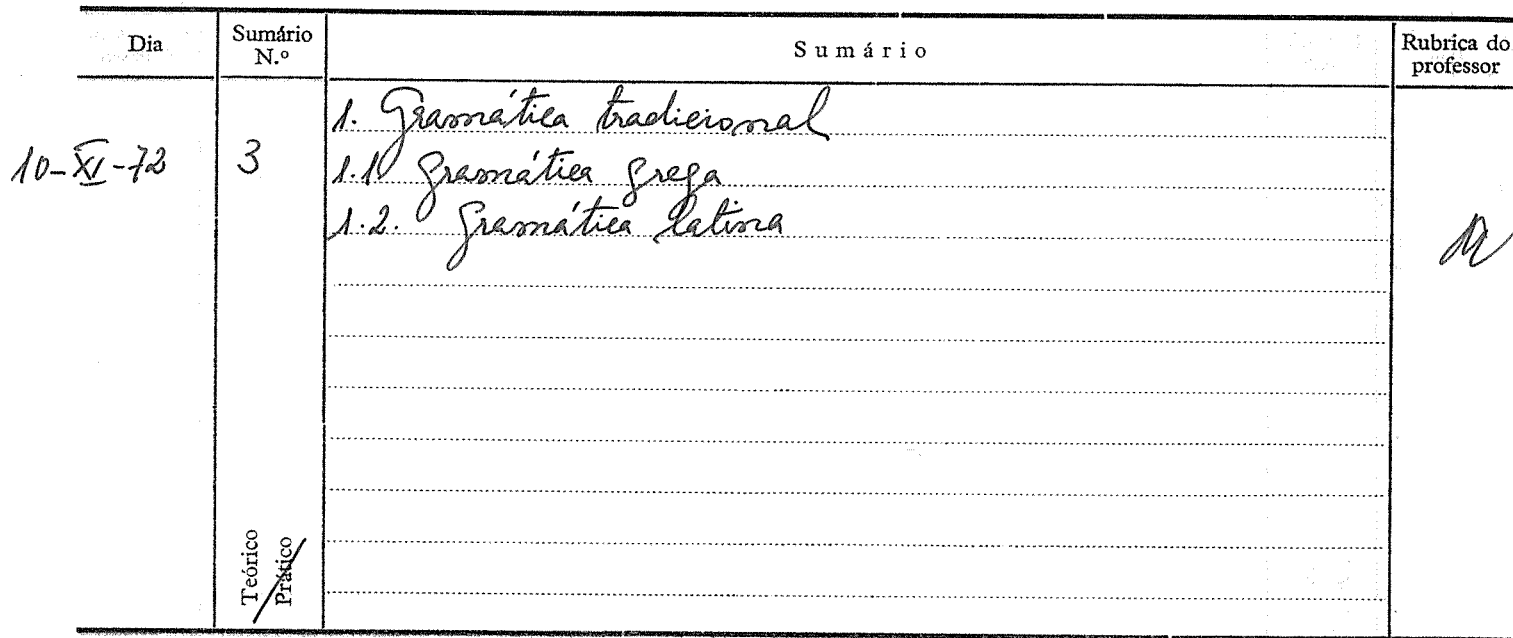 Dia
Sumário N.º
Sumário
Rubrica do professor
10-XI-72
3
1. Gramática tradicional
1.1 Gramática grega
1.2. Gramática latina
Teórico
Prático